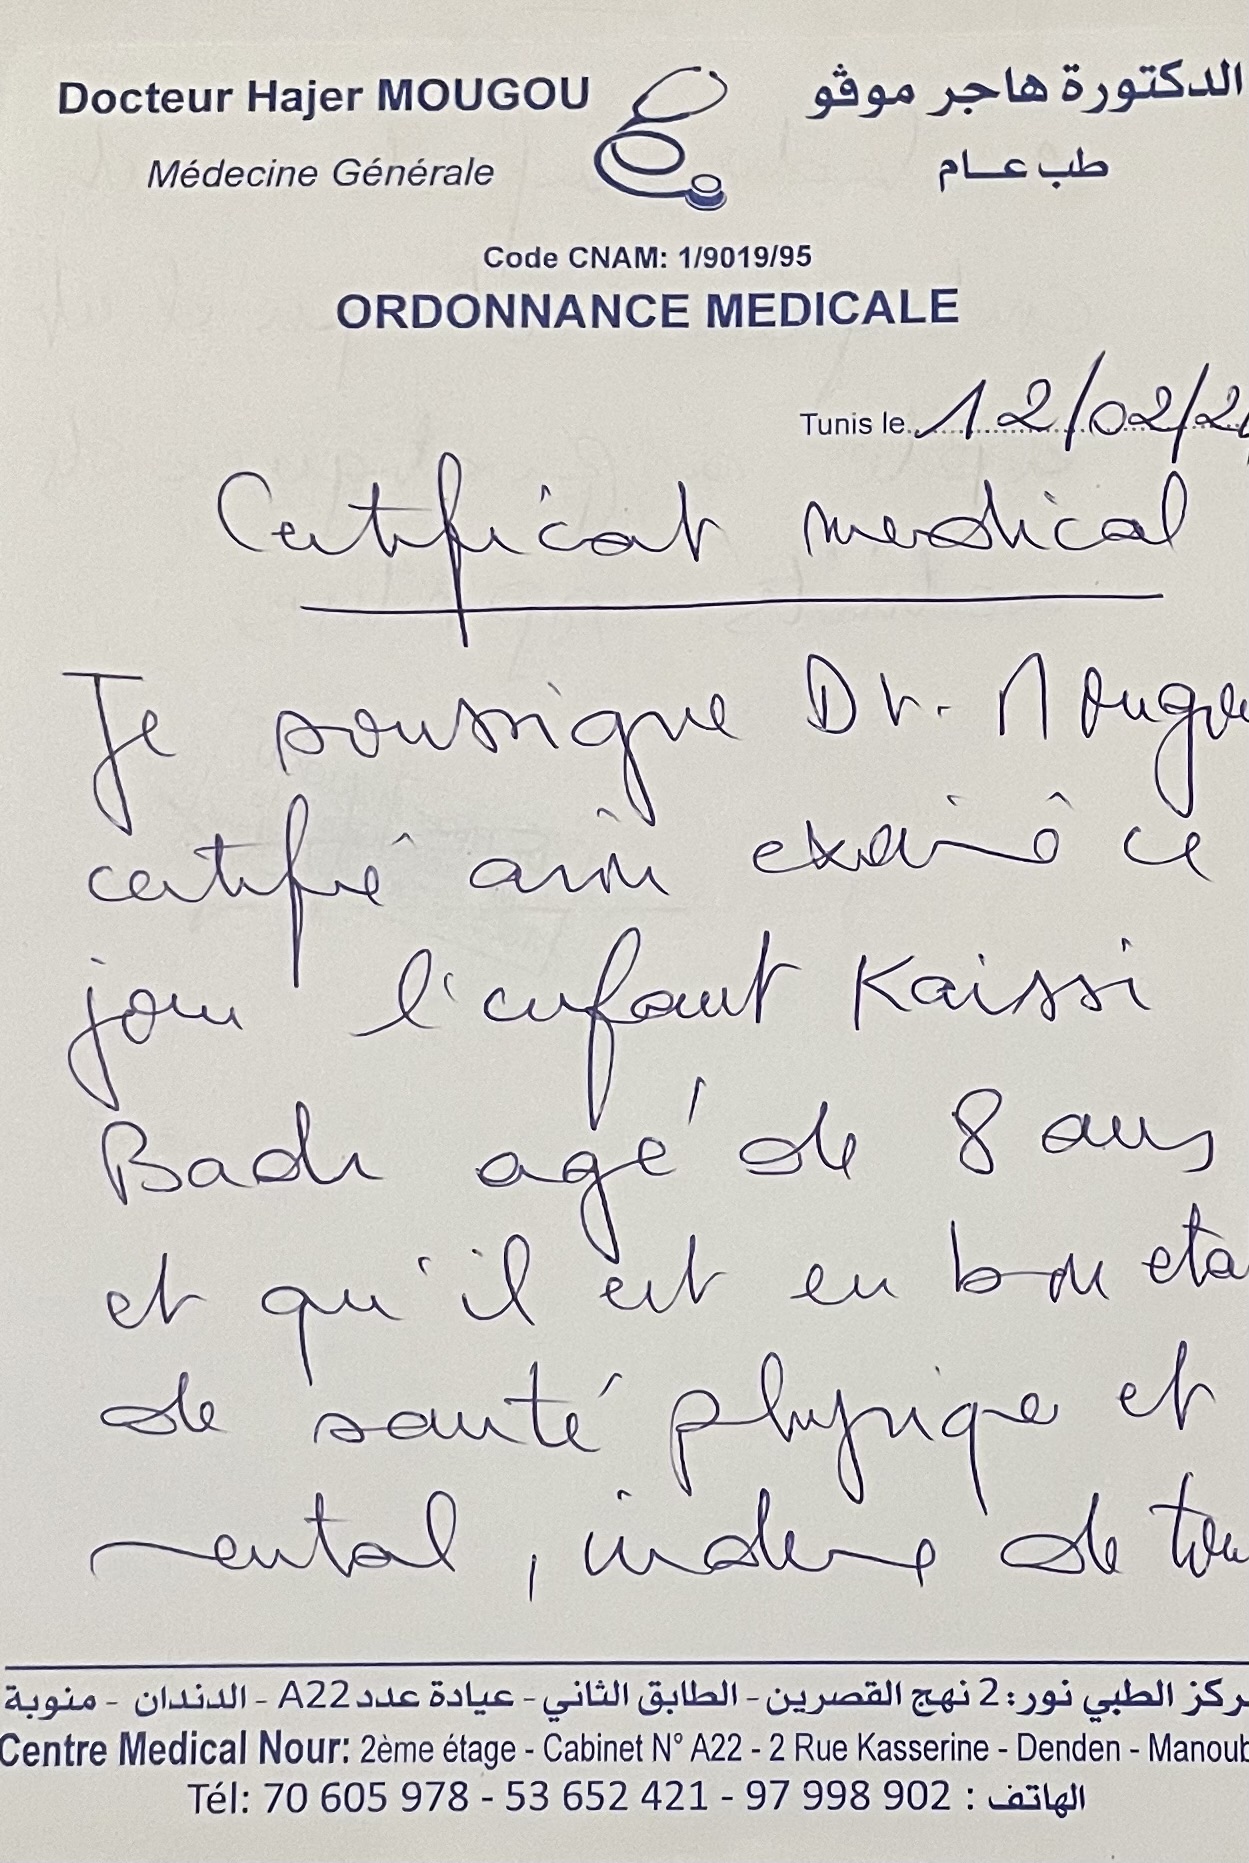 Docteur Hajer MOUGOU
الدكتورة هاجر موڨو
Médecine Générale
طب عــام
Code CNAM: 1/9019/95
ORDONNANCE MEDICALE
Tunis le 12/02/2
Certificat medical
Je soussigne Dr. Mougou
certifié avoir examiné ce
jour l'enfant Kaissi
Badr agé de 8 ans
et qu'il est en bon eta
de santé physique et
mental, indemne de tou
ركز الطبي نور: 2 نهج القصرين - الطابق الثاني - عيادة عدد A22 - الدندان - منوبة
Centre Medical Nour: 2ème étage - Cabinet N° A22 - 2 Rue Kasserine - Denden - Manoub
Tél: 70 605 978 - 53 652 421 - 97 998 902 : الهاتف